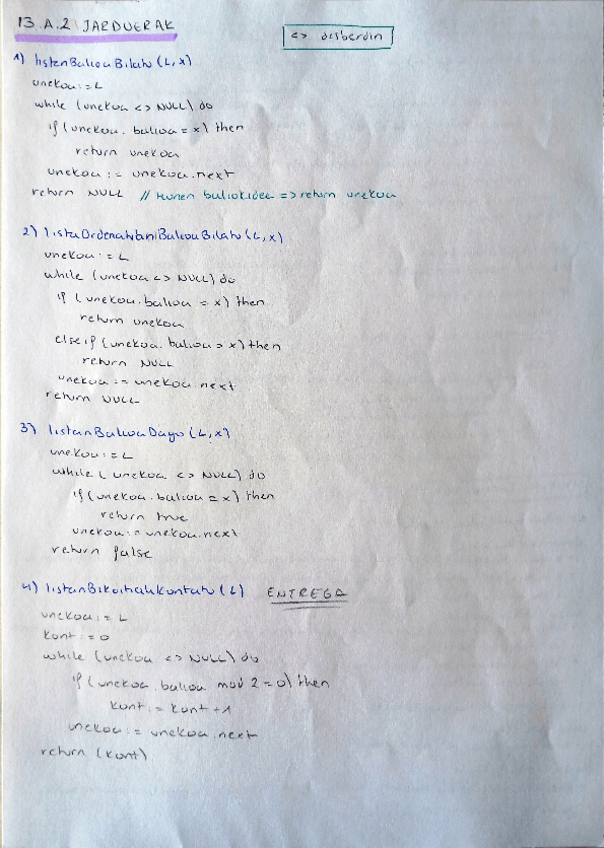 13.A.2 JARDUERAK
<> desberdin
1) listanBalioaBilatu (L, x)
unekoa := L
while (unekoa <> NULL) do
if (unekoa.balioa = x) then
return unekoa
unekoa := unekoa.next
return NULL // Hunen baliokidea => return unekoa
2) listaOrdenatuanBalioaBilatu (L, x)
unekoa := L
while (unekoa <> NULL) do
if (unekoa.balioa = x) then
return unekoa
else if (unekoa.balioa > x) then
return NULL
unekoa := unekoa.next
return NULL
3) listanBalioaDago (L, x)
unekoa := L
while (unekoa <> NULL) do
if (unekoa.balioa = x) then
return true
unekoa := unekoa.next
return false
4) listanBikoitiakKontatu (L) ENTREGA
unekoa := L
kont := 0
while (unekoa <> NULL) do
if (unekoa.balioa mod 2 = 0) then
kont := kont + 1
unekoa := unekoa.next
return (kont)